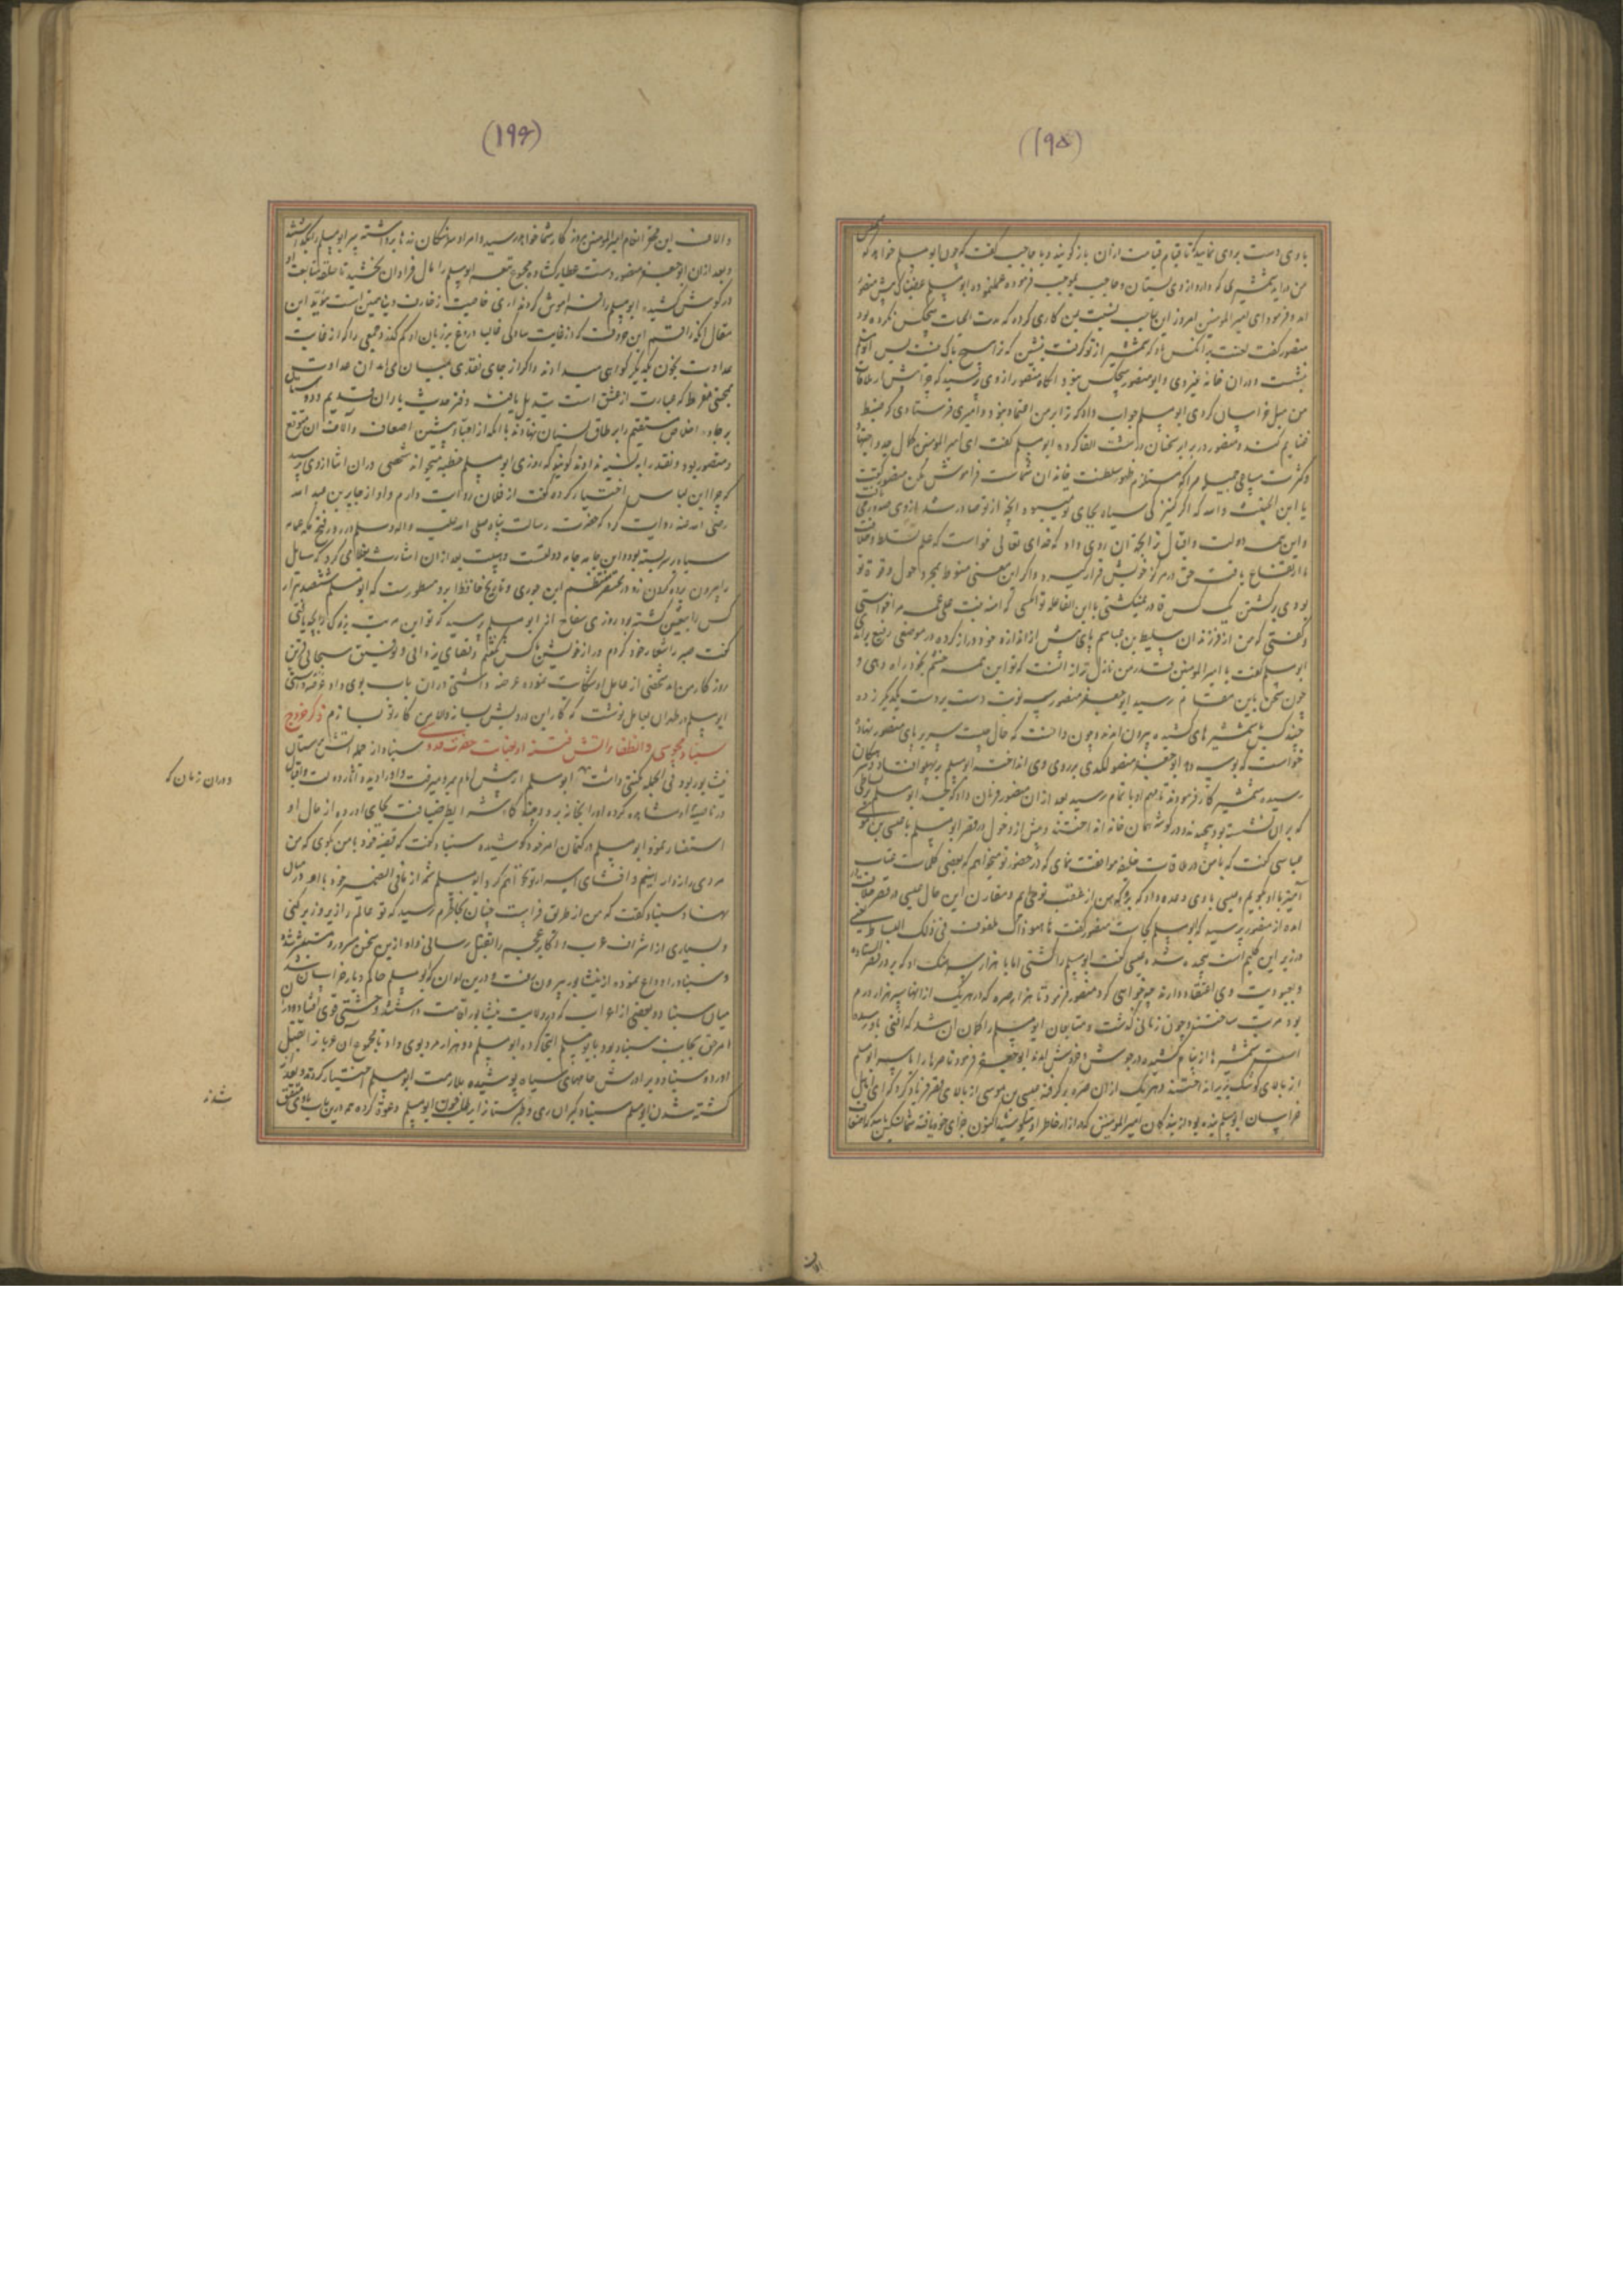 (۱۹۵)
باوی دست بردی نمایید که تا قیام قیامت ازان باز گویند و با حاجب گفت که چون ابومسلم خواهد که
من دراید شمشیری که دارد از وی بستان و حاجب بموجب فرموده عمل نمود و ابومسلم غضبناک پیش منصور
امد و فرمود ای امیرالمومنین امروز این حاجب نسبت بمن کاری کرده که مدت الحیات هیچکس نکرده بود
منصور گفت لعنت بر انکس باد که شمشیر از تو گرفت بنشین که ترا هیچ باک نیست پس ابومسلم
بنشست و دران خانه غیر وی و ابومنصور هیچکس نبود انگاه منصور از وی پرسید که چرا پیش از ملاقات
من میل خراسان کردی ابومسلم جواب داد که ترا بر من اعتماد نبود و امیری فرستادی که ضبط
غنایم کند و منصور در برابر سخنان درشت القا کرد ابومسلم گفت ای امیرالمومنین کمال جد و اجتهاد
و کثرت مساعی جمیله مرا که مستلزم ظهور سلطنت خاندان شماست فراموش مکن منصور گفت
یا ابن الخبیثه والله که اگر کنیزکی سیاه بجای تو میبود انچه از تو صادر شد از وی صدور می یافت
و این همه دولت و اقبال ترا بجهة ان روی داد که خدای تعالی خواست که علم تسلط و خلافت
ما ارتفاع یافت حق در مرکز خویش قرار گیرد و اگر این معنی منوط بمجرد حول و قوة تو
بودی بر کشتن یک کس قادر نمیگشتی یا ابن الفاعله تو انکسی که امنه بنت علی عمه مرا خواستی
و گفتی که من از فرزندان سلیط بن عباسم پای پیش از اندازه خود دراز کرده در موضعی رفیع بر امدی
ابومسلم گفت یا امیرالمومنین قدر من نازل تر از انست که تو این همه خشم بخود راه دهی و
چون سخن باین مقام رسید ابوجعفر منصور سه نوبت دست بر دست یکدیگر زده
چند کس با شمشیرهای کشیده بیرون امدند و چون دانست که حال چیست سر بر پای منصور نهاد
خواست که بوسد ابوجعفر منصور لگدی بر روی وی انداخت ابومسلم بپهلو افتاد و سرهنگان
رسیده شمشیر کار فرمودند تا مهم او باتمام رسید بعد ازان منصور فرمان داد که جسد ابومسلم را در بساطی
که بران نشسته بود پیچیدند و در گوشه همان خانه انداختند و پیش از دخول در قصر ابومسلم با عیسی بن موسی
عباسی گفت که با من در ملاقات خلیفه موافقت نمای که در حضور تو میخواهم که بعضی کلمات عتاب
آمیز با او بگویم و عیسی باوی وعده داد که برو که من از عقب تو می ایم و مقارن این حال عیسی در قصر خلافت
امده از منصور پرسید که ابومسلم کجاست منصور گفت ها هو ذاک ملفوف فی ذلک البساط یعنی
در زیر این گلیم است پیچیده شده عیسی گفت ابومسلم را کشتی اما با هزار سرهنگ او که بر در قصر استاده
و بعبودیت وی اعتقاد دارند چه خواهی کرد منصور فرمود تا هزار صره که در هر یک ازانها سه هزار درم
بود مرتب ساختند و چون زمانی گذشت و متابعان ابومسلم را گمان ان شد که افتی باو رسیده
است شمشیرها از نیام کشیده در جوش و خروش امدند ابوجعفر فرمود تا صره ها را با سر ابومسلم
از بالای کوشک بزیر انداختند و هر یک ازان صره بر گرفته عیسی بن موسی از بالای قصر فریاد کرد که ای اهل
خراسان ابومسلم بنده بود از بندگان امیرالمومنین که ازار خاطر او میکوشید اکنون جزای خود یافته شما تسکین یابید که اضعاف
(۱۹۶)
و الاف این مجموع انعام امیرالمومنین بروزگار شما خواهد رسید و امرا و سرهنگان زرها برداشته سر ابومسلم را بگذاشتند
و بعد ازان ابوجعفر منصور دست عطا بر گشاده مجموع تبعه ابومسلم را مال فراوان بخشید تا حلقه متابعت او
در گوش کشیده ابومسلم را فراموش کردند اری خاصیت زخارف دنیا همین است مؤید این
مقال انکه راقم این حروف که از غایت سادگی غالبا دروغ بر زبان او کم گذرد جمعی را که از غایت
عداوت بخون یکدیگر گواهی میدادند و اگر از جای نقدی بمیان می امد ان عداوت
بمحبتی مفرط که عبارت از عشق است تبدیل یافت و نفر حدیث یاران قدیم و دوستان
بر جاده اخلاص مستقیم را بر طاق نسیان نهادند با انکه از اعتبار پیشین اضعاف و آلاف ان متوقع
و متصور بود و نقد را به نسیه ندادند گویند که روزی ابومسلم خطبه میخواند شخصی دران اثنا از وی پرسید
که چرا این لباس اختیار کرده گفت از فلان روایت دارم و او از جابر بن عبد الله
رضی الله عنه روایت کرد که حضرت رسالت پناه صلی الله علیه واله وسلم در روز فتح مکه عمامه
سیاه بر سر بسته بود و این جامه جامه دولتست و هیبت بعد ازان اشارت بغلامی کرد که سایل
را بیرون برده گردن زد در مختصر منتظم ابن جوزی و تاریخ حافظ ابرو مسطورست که ابومسلم ششصد هزار
کس را بیقین کشته بود روزی سفاح از ابومسلم پرسید که تو این مرتبه بزرگی را بچه یافتی
گفت صبر را شعار خود کردم و راز خویش با کس نگفتم و قضای یزدانی و توفیق سبحانی قرین
روزگار من امد شخصی از عامل او شکایت نموده عرضه داشتی دران باب بوی داد
ابومسلم در ظهر ان بعامل نوشت که کار این درویش بساز والا من کار تو بسازم ذکر خروج
سنباد مجوسی و انطفاء آتش فتنه او بعنایت حضرت صمدی سنباد از جمله اتش پرستان
نیشابور بود فی الجمله مکنتی داشت ابومسلم از پیش امام می رفت و او را دیده اثار دولت و اقبال
در ناصیه او مشاهده کرده او را بخانه برد و چند گاه شرایط ضیافت بجای اورده از حال او
استفسار نمود ابومسلم در کتمان امر خود کوشیده سنباد گفت که قصه خود با من بگوی که من
مردی راز دارم و افشای اسرار تو نخواهم کرد ابومسلم شمه از ما فی الضمیر خود با او در میان
نهاد سنباد گفت که من از طریق فراست چنان بخاطرم رسید که تو عالم را زیر و زبر کنی
و بسیاری از اشراف عرب و اکابر عجم را بقتل رسانی و او ازین سخن مسرور و مستبشر شده
و سنباد را وداع نموده از نیشابور بیرون رفت و درین اوان که ابومسلم حاکم دیار خراسان شد
میان سنباد و بعضی از اعراب که در ولایت نیشابور اقامت داشتند وحشتی قوی افتاده دران
امر حق بجانب سنباد بود با ابومسلم التجا کرد و ابومسلم دو هزار مرد بوی داد تا مجموع آن عرب را بقتل
اورد و سنباد و برادرش جامهای سیاه پوشیده ملازمت ابومسلم اختیار کردند و بعد از
کشته شدن ابومسلم سنباد گبران ری و طبرستان را بطلب خون ابومسلم دعوة کرده همه درین باب با وی متفق
دوران زمان که
شدند